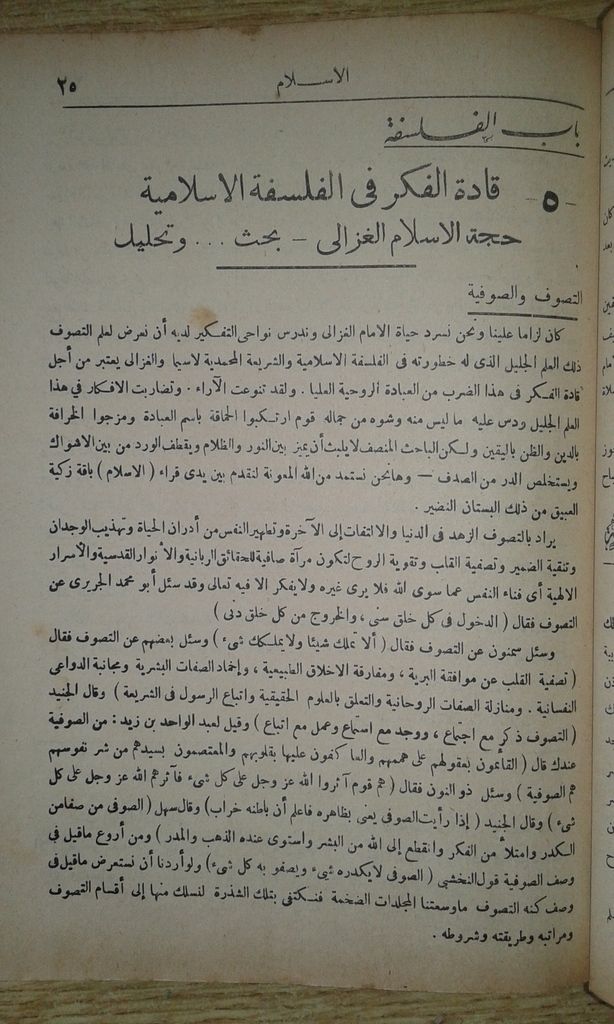 الاســــلام
٢٥
باب الفلسفة
- ٥ -
قادة الفكر فى الفلسفة الاسلامية
حجة الاسلام الغزالى – بحث ... وتحليل
التصوف والصوفية
كان لزاما علينا ونحن نسرد حياة الامام الغزالى وندرس نواحى التفكير لديه أن نعرض لعلم التصوف
ذلك العلم الجليل الذى له خطورته فى الفلسفة الاسلامية والشريعة المحمدية لاسيما والغزالى يعتبر من أجل
قادة الفكر فى هذا الضرب من العبادة الروحية العليا . ولقد تنوعت الآراء . وتضاربت الافكار في هذا
العلم الجليل ودس عليه ما ليس منه وشوه من جماله قوم ارتكبوا الحماقة باسم العبادة ومزجوا الخرافة
بالدين والظن باليقين ولكن الباحث المنصف لايلبث أن يميز بين النور والظلام ويقطف الورد من بين الاشواك
ويستخلص الدر من الصدف — وهانحن نستمد من الله المعونة لنقدم بين يدى قراء ( الاسلام ) باقة زكية
العبيق من ذلك البستان النضير .
يراد بالتصوف الزهد فى الدنيا والالتفات إلى الآخرة وتطهير النفس من أدران الحياة وتهذيب الوجدان
وتنقية الضمير وتصفية القلب وتقوية الروح لتكون مرآة صافية للحقائق الربانية والأنوار القدسية والأسرار
الالهية أى فناء النفس عما سوى الله فلا يرى غيره ولايفكر الا فيه تعالى وقد سئل أبو محمد الجريرى عن
التصوف فقال ( الدخول فى كل خلق سنى ، والخروج من كل خلق دنى )
وسئل سمنون عن التصوف فقال ( ألا تملك شيئا ولايملكك شىء ) وسئل بعضهم عن التصوف فقال
( تصفية القلب عن موافقة البرية ، ومفارقة الاخلاق الطبيعية ، وإخماد الصفات البشرية ومجانبة الدواعى
النفسانية . ومنازلة الصفات الروحانية والتعلق بالعلوم الحقيقية واتباع الرسول فى الشريعة ) وقال الجنيد
( التصوف ذكر مع اجتماع ، ووجد مع استماع وعمل مع اتباع ) وقيل لعبد الواحد بن زيد : من الصوفية
عندك قال ( القائمون بعقولهم على همومهم والعاكفون عليها بقلوبهم والمعتصمون بسيدهم من شر نفوسهم
هم الصوفية ) وسئل ذو النون فقال ( هم قوم آثروا الله عز وجل على كل شىء فآثرهم الله عز وجل على كل
شىء ) وقال الجنيد ( إذا رأيت الصوفى يعنى بظاهره فاعلم أن باطنه خراب ) وقال سهل ( الصوفى من صفا من
الكدر وامتلأ من الفكر وانقطع إلى الله من البشر واستوى عنده الذهب والمدر ) ومن أروع ماقيل فى
وصف الصوفية قول النخشبى ( الصوفى لايكدره شىء ويصفو به كل شىء ) ولو أردنا أن نستعرض ماقيل فى
وصف كنه التصوف ماوسعتنا المجلدات الضخمة فنكتفى بتلك الشذرة لنسلك منها إلى أقسام التصوف
ومراتبه وطريقته وشروطه .